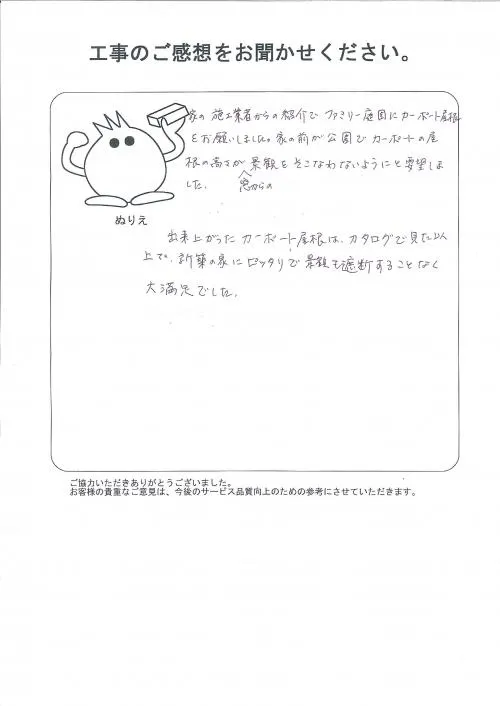 工事のご感想をお聞かせください。
家の施工業者からの紹介でファミリー庭園にカーポート屋根
をお願いしました。家の前が公園でカーポートの屋
根の高さが景観をそこなわないようにと要望しま
した。
窓からの
ぬりえ
出来上がったカーポート屋根は、カタログで見た以
上で、新築の家にピッタリで景観も遮断することなく
大満足でした。
ご協力いただきありがとうございました。
お客様の貴重なご意見は、今後のサービス品質向上のための参考にさせていただきます。